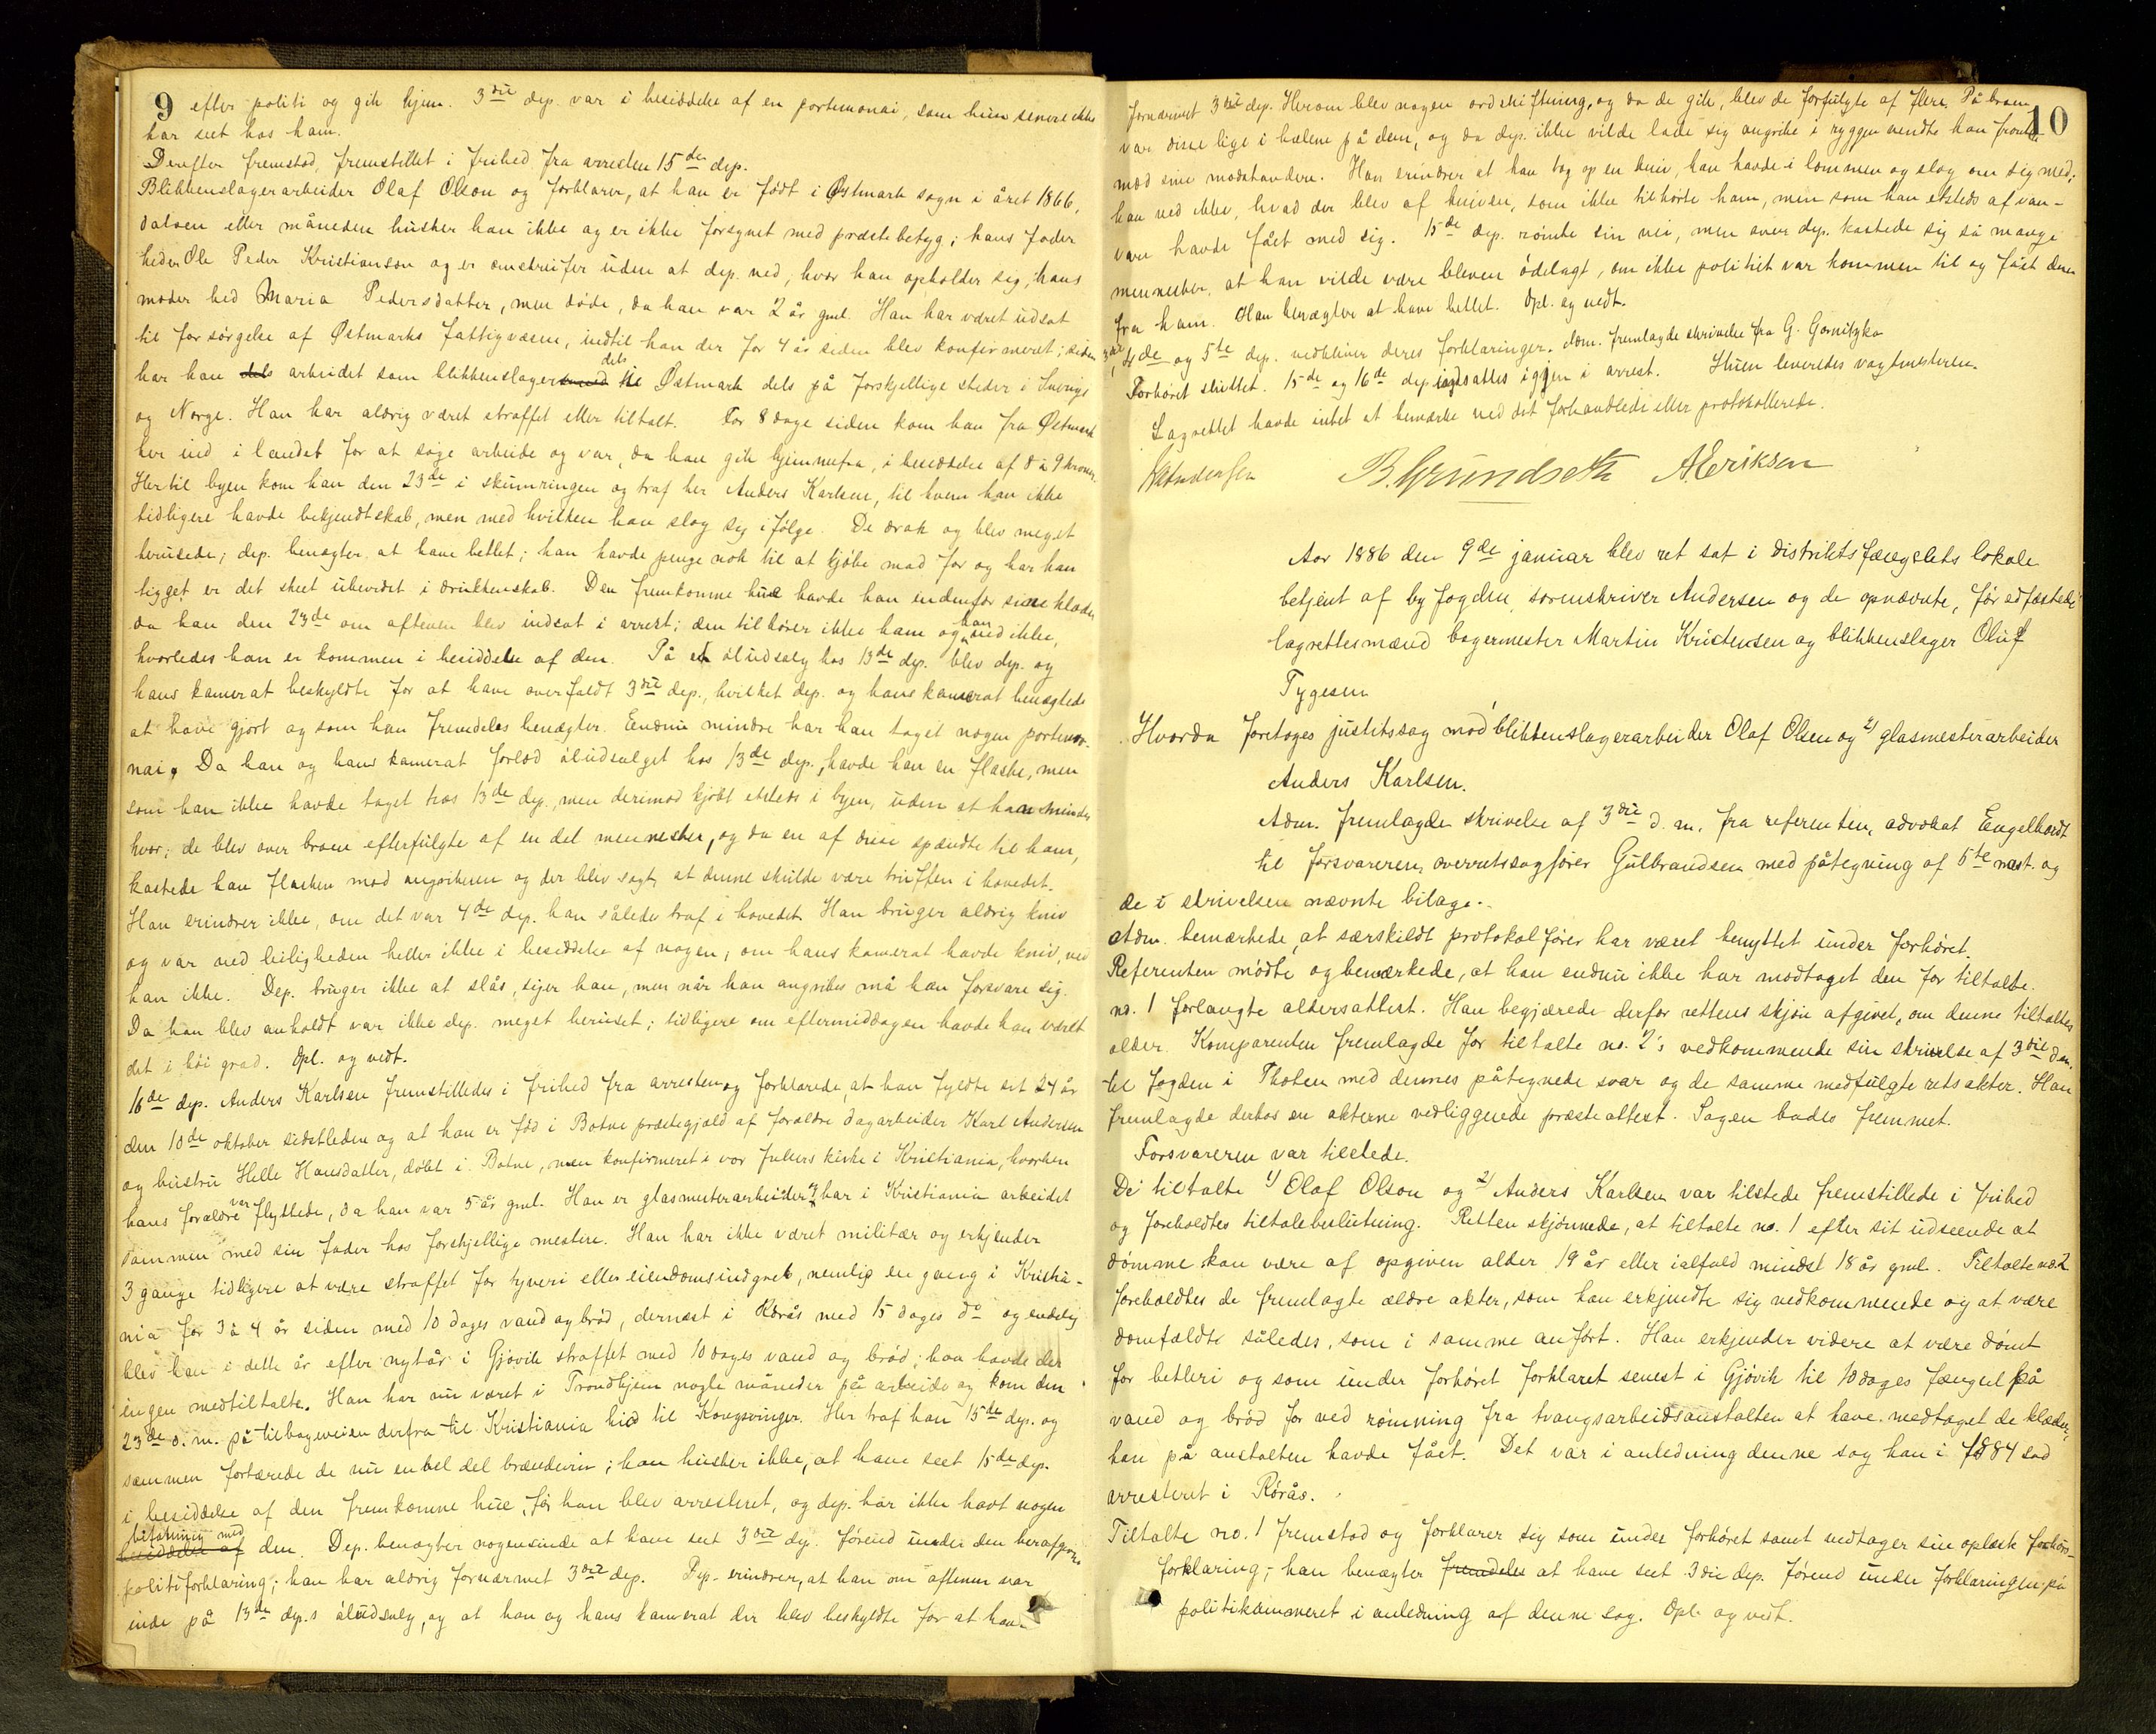 9
efter politi og gik hjem. 3die dep. var i besiddelse af en portemonai, som hun senere ikke
har seet hos ham.
Derefter fremstod, fremstillet i frihed fra arresten 15de dep.
Blikkenslagerarbeider Olaf Olson og forklarer, at han er født i Østmark sogn i året 1866,
datoen eller måneden husker han ikke og er ikke forsynet med præstebetyg; hans fader
heder Ole Peder Kristianson og er omstreifer uden at dep. ved, hvor han opholder sig, hans
moder hed Maria Pedersdatter, men døde, da han var 2 år gml. Han har været udsat
til forsørgelse af Østmarks fattigvæsen, indtil han der for 4 år siden blev konfirmeret; siden
har han dels arbeidet som blikkenslager dels i Østmark dels på forskjellige steder i Sverige
og Norge. Han har aldrig været straffet eller tiltalt. For 8 dage siden kom han fra Østmark
her ind i landet for at søge arbeide og var, da han gik hjemmefra, i besiddelse af 8 à 9 kroner.
Her til byen kom han den 23de i skumringen og traf her Anders Karlsen, til hvem han ikke
tidligere havde bekjendtskab, men med hvilken han slog sig i følge. De drak og blev meget
berusede; dep. benægter at have betlet; han havde penge nok til at kjøbe mad for og har han
tigget er det skeet ubevidst i drukkenskab. Den fremkomne hue havde han indenfor sine klæder
da han den 23de om aftenen blev indsat i arrest; den tilhører ikke ham og han ved ikke,
hvorledes han er kommen i besiddelse af den. På et øludsalg hos 13de dep. blev dep. og
hans kamerat beskyldte for at have overfaldt 3die dep., hvilket dep. og hans kamerat benægtede
at have gjort og som han fremdeles benægter. Endnu mindre har han taget nogen portemo-
nai. Da han og hans kamerat forlod øludsalget hos 13de dep., havde han en flaske, men
som han ikke havde taget hos 13de dep., men derimod kjøbt etsteds i byen, uden at han mindes
hvor; de blev over broen efterfulgte af en del mennesker, og da en af disse spændte til ham,
kastede han flasken mod angriberen og der blev sagt, at denne skulde være truffen i hovedet.
Han erindrer ikke, om det var 4de dep. han således traf i hovedet. Han bruger aldrig kniv
og var ved leiligheden heller ikke i besiddelse af nogen; om hans kamerat havde kniv, ved
han ikke. Dep. bruger ikke at slås, siger han, men når han angribes må han forsvare sig.
Da han blev anholdt var ikke dep. meget beruset; tidligere om eftermiddagen havde han været
det i høi grad. Opl. og vedt.
16de dep. Anders Karlsen fremstilledes i frihed fra arresten og forklarede, at han fyldte sit 24 år
den 10de oktober sidstleden og at han er fød i Botne præstegjæld af forældre dagarbeider Karl Andersen
og hustru Helle Hansdatter, døbt i Botne, men konfirmeret i vor Frelsers kirke i Kristiania, hvorhen
hans forældre var flyttede, da han var 5 år gml. Han er glasmesterarbeider og har i Kristiania arbeidet
sammen med sin fader hos forskjellige mestere. Han har ikke været militær og erkjender
3 gange tidligere at være straffet for tyveri eller eiendomsindgreb, nemlig en gang i Kristia-
nia for 3 à 4 år siden med 10 dages vand og brød, dernæst i Rørås med 15 dages do og endelig
blev han i dette år efter nytår i Gjøvik straffet med 10 dages vand og brød; han havde der
ingen medtiltalte. Han har nu været i Trondhjem nogle måneder på arbeide og kom den
23de d. m. på tilbageveien derfra til Kristiania hid til Kongsvinger. Her traf han 15de dep. og
sammen fortærede de nu en hel del brændevin; han husker ikke, at have seet 15de dep.
i besiddelse af den fremkomne hue, før han blev arresteret, og dep. har ikke havt nogen
befatning med
besiddelse af den. Dep. benægter nogensinde at have seet 3die dep. førend under den herafgivne
politiforklaring; han har aldrig fornærmet 3die dep. Dep. erindrer, at han om aftenen var
inde på 13de dep.s øludsalg, og at han og hans kamerat der blev beskyldte for at have
10
fornærmet 3die dep. Herom blev nogen ordskiftning, og da de gik, blev de forfulgte af flere. På broen
var disse lige i hælene på dem, og da dep. ikke vilde lade sig angribe i ryggen vendte han front
mod sine modstandere. Han erindrer at han tog op en kniv, han havde i lommen og slog om sig med;
han ved ikke, hvad der blev af kniven, som ikke tilhørte ham, men som han etsteds af van-
vare havde fået med sig. 15de dep. rømte sin vei, men over dep. kastede sig så mange
mennesker, at han vilde være bleven ødelagt, om ikke politiet var kommen til og fået dem
fra ham. Han benægter at have betlet. Opl. og vedt.
3die, 4de og 5te dep. vedbliver deres forklaringer. Adm. fremlagde skrivelse fra G. Gornitzka
Forhøret sluttet. 15de og 16de dep. indsattes igjen i arrest. Huen leveredes vagtmesteren.
Lagrettet havde intet at bemærke ved det forhandlede eller protokollerede.
B. Grundseth A. Eriksen
Aar 1886 den 9de januar blev ret sat i distriktsfængslets lokale
betjent af byfogden, sorenskriver Andersen og de opnævnte, før edfæstede
lagrettesmænd bagermester Martin Kristensen og blikkenslager Oluf
Tygesen
Hvorda foretoges justitssag mod blikkenslagerarbeider Olaf Olsen og 2) glasmesterarbeider
Anders Karlsen.
Adm. fremlagde skrivelse af 3die d. m. fra referenten, advokat Engelhardt
til forsvareren, overretssagfører Gulbrandsen med påtegning af 5te næst. og
de i skrivelsen nævnte bilage.
Adm. bemærkede, at særskildt protokolfører har været benyttet under forhøret.
Referenten mødte og bemærkede, at han endnu ikke har modtaget den for tiltalte
no. 1 forlangte aldersattest. Han begjærede derfor rettens skjøn afgivet, om denne tiltaltes
alder. Komparenten fremlagde for tiltalte no. 2's vedkommende sin skrivelse af 3die dm.
til fogden i Thoten med dennes påtegnede svar og de samme medfulgte retsakter. Han
fremlagde derhos en akterne vedliggende præsteattest. Sagen bades fremmet.
Forsvareren var tilstede.
De tiltalte 1) Olaf Olson og 2) Anders Karlsen var tilstede fremstillede i frihed
og foreholdtes tiltalebeslutning. Retten skjønnede, at tiltalte no. 1 efter sit udseende at
dømme kan være af opgiven alder 19 år eller ialfald mindst 18 år gml. Tiltalte no 2
foreholdtes de fremlagte ældre akter, som han erkjendte sig vedkommende og at være
domfældte således, som i samme anført. Han erkjender videre at være dømt
for betleri og som under forhøret forklaret senest i Gjøvik til 10 dages fængsel på
vand og brød for ved rømning fra tvangsarbeidsanstalten at have medtaget de klæder,
han på anstalten havde fået. Det var i anledning denne sag han i 1884 sad
arresteret i Rørås.
Tiltalte no. 1 fremstod og forklarer sig som under forhøret samt vedtager sin oplæste forhørs-
forklaring; han benægter fremdeles at have seet 3die dep. førend under forklaringen på
politikammeret i anledning af denne sag. Opl. og vedt.